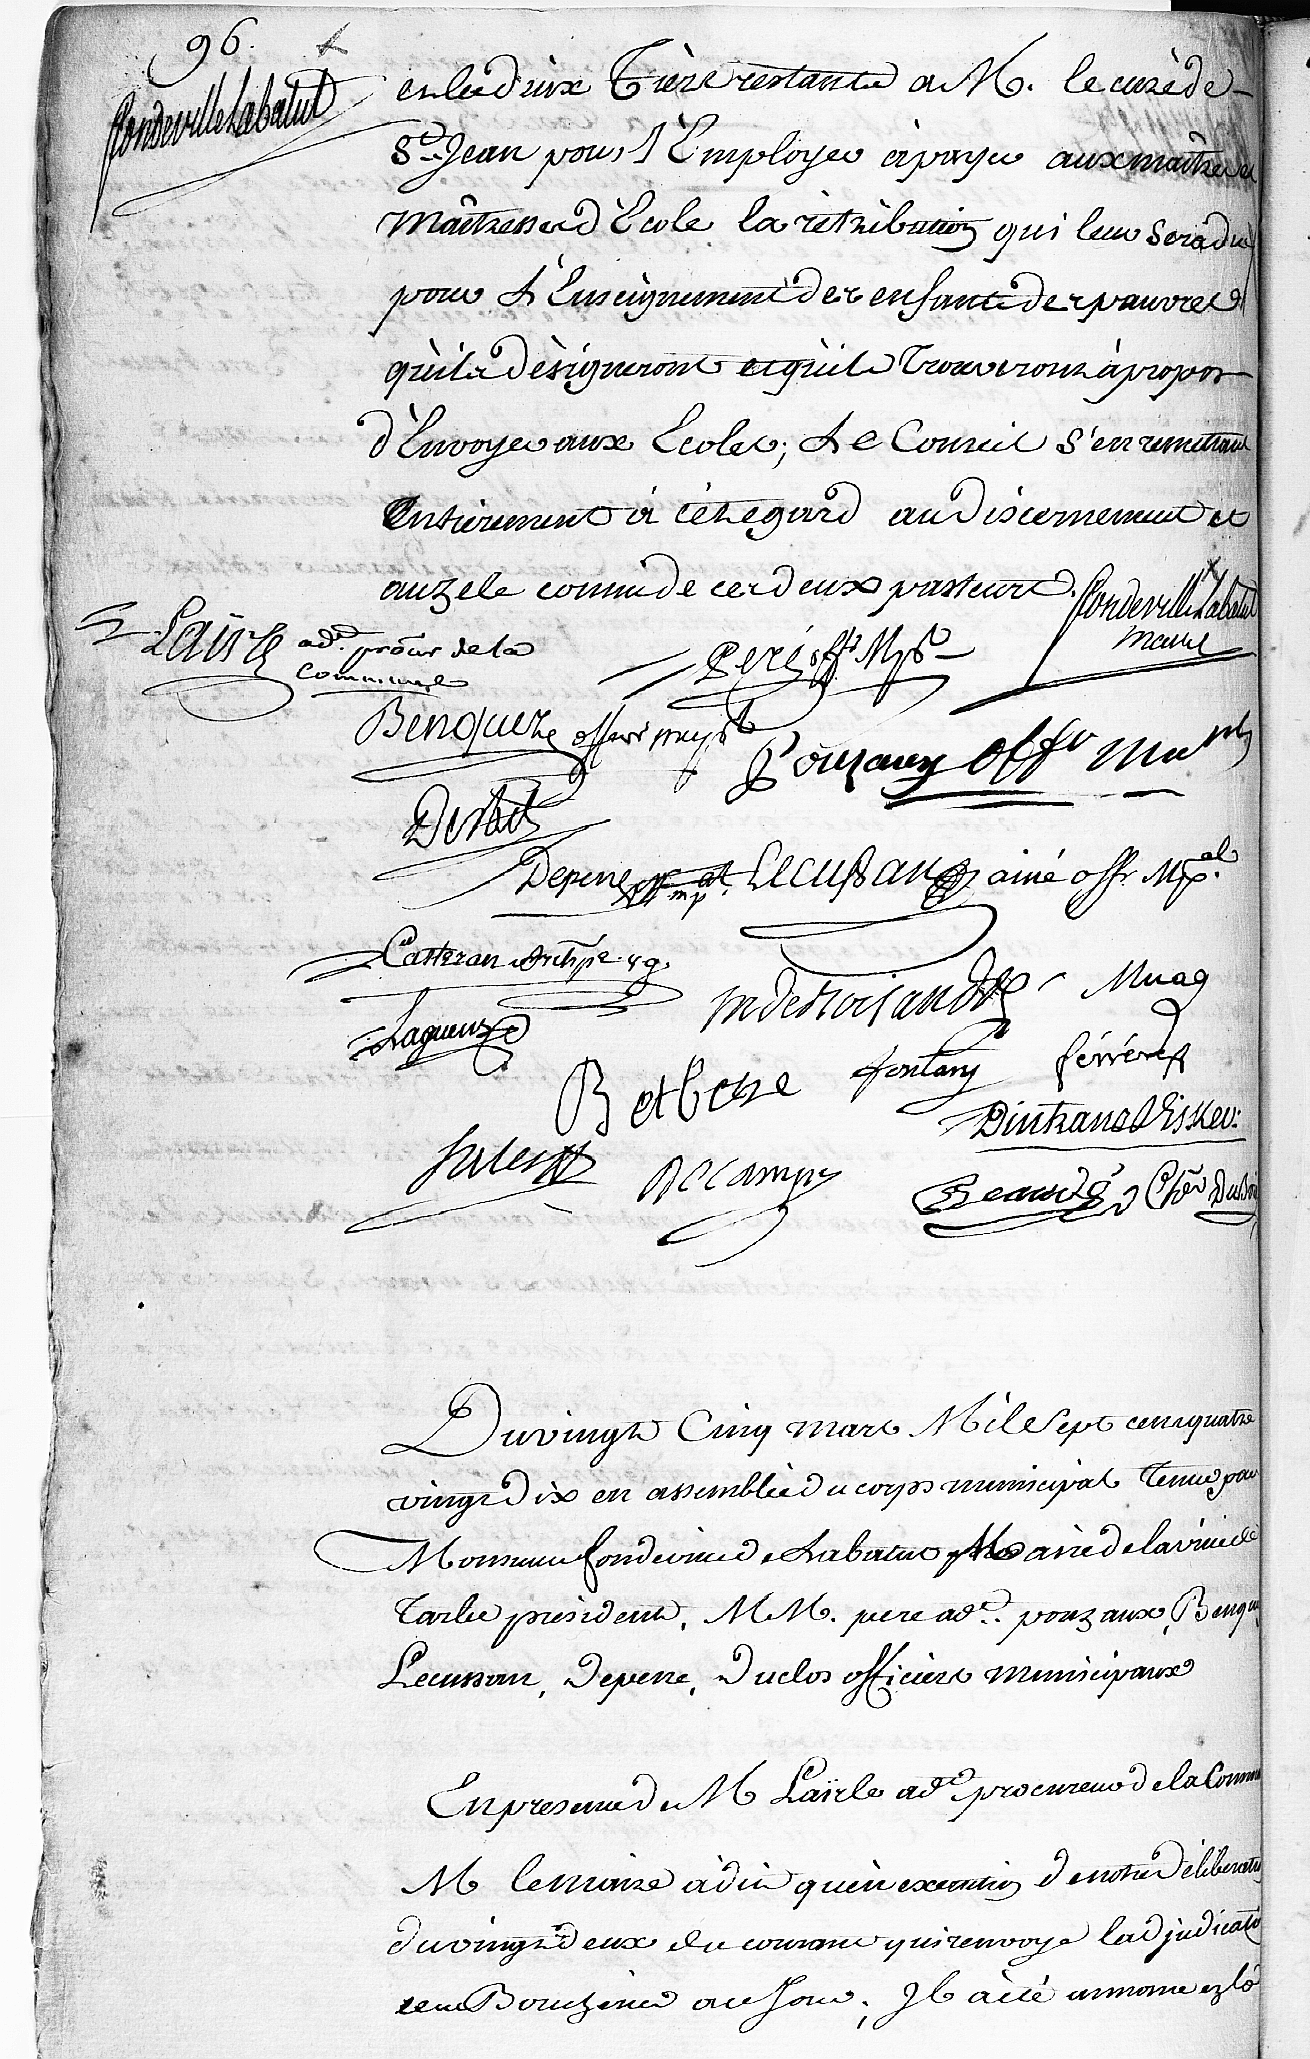 96.
fondeville Labatut
et les deux Tiers restants a M. le curé de
St. Jean pour l'Employer à payer aux maitres et
Maîtresses d'Ecole la rétribution qui leur sera dûe
pour L'Enseignement des enfants des pauvres
qu'ils désigneront et qu'ils Trouveront à propos
d'Envoyer aux Ecoles; Le Conseil s'en remettant
Entierement à cet egard au discernement et
au zele connu de ces deux pasteurs.
fondeville Labatut
maire
Lairle adt. procur de la
commune
Peré offr Mpl
Benquez officier mupl
Pouzaux offr mual
Depene offr mpal. Lecussan ainé offr. Mpal.
Casteran
Lagueux
Betbeze fontan ferrere
Dintrans
Decamps Cher Dubois
Du vingt Cinq mars Mil Sept cens quatre
vingt dix en assemblée du corps municipal Tenue par
Monsieur fondeville de Labatut Maire de la ville de
Tarbe président, MM. pere adt. pouzaux, Benque
Lecussan, Depene, Duclos officiers municipaux
En presence de M Lairle adt. procureur de la Commu
M le maire à dit qu'en execution de notre déliberatio
du vingt deux du courant qui renvoye l'adjudicatio
des Boucheries a ce Jour, Il a été